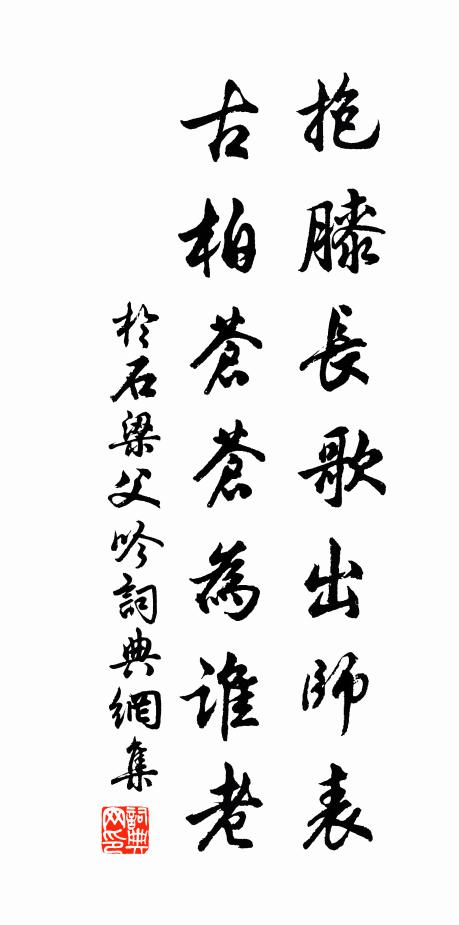 抱膝長歌出師表
古柏蒼蒼為誰老
於石梁父吟詞典網集
詞典網印